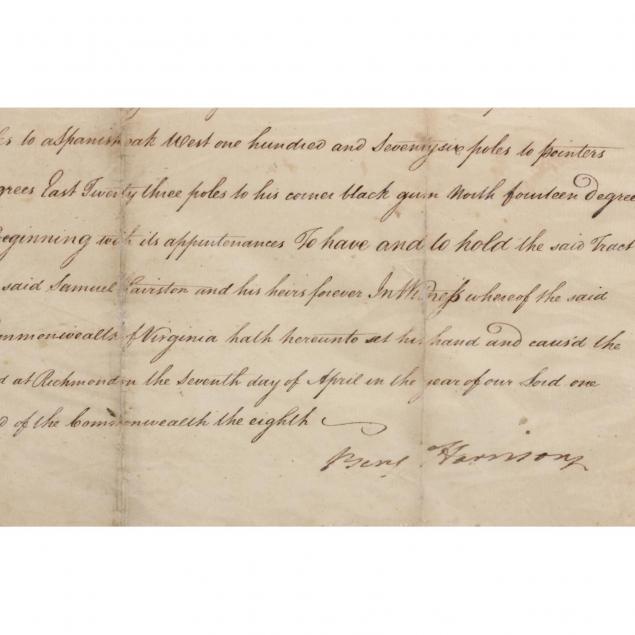 to a Spanish oak West one hundred and Seventy six poles to pointers
grees East Twenty three poles to his corner black gum North fourteen degree
beginning with its appurtenances To have and to hold the said Tract
said Samuel Hairston and his heirs forever In Witness whereof the said
ommonwealth of Virginia hath hereunto set his hand and caus'd the
d at Richmond on the Seventh day of April in the year of our Lord one
d of the Commonwealth the eighth
Benj Harrison